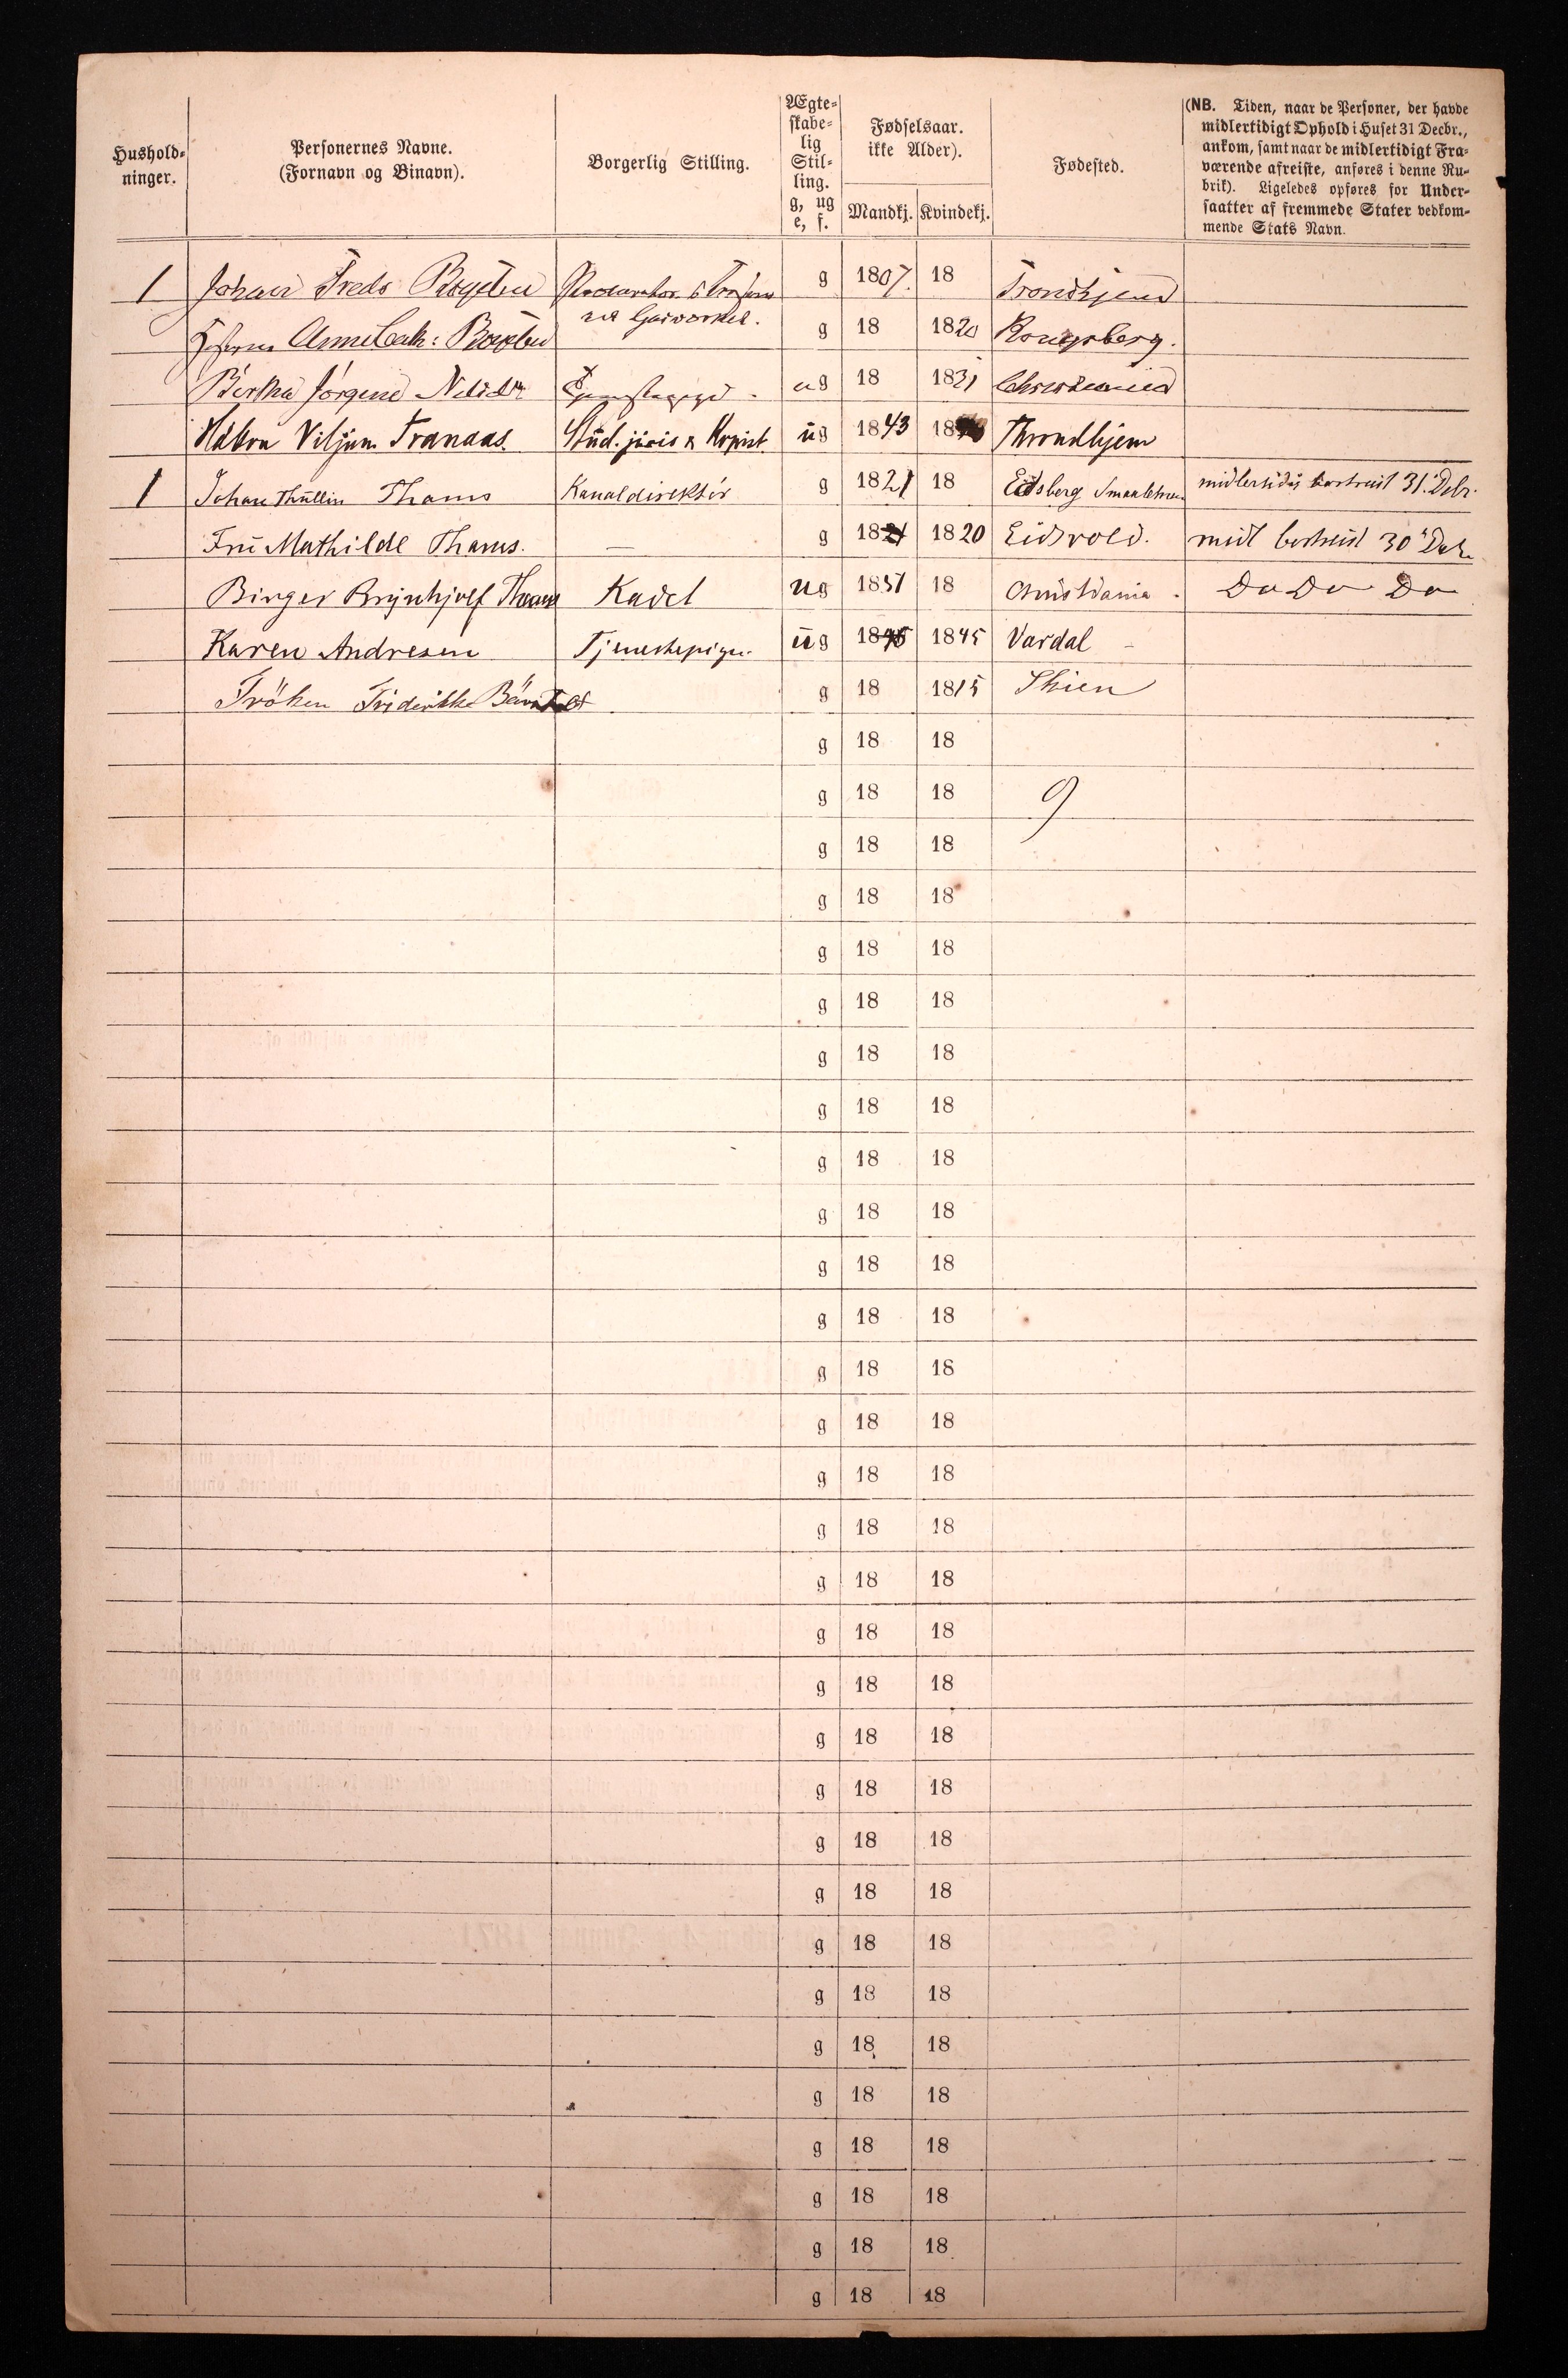 Hushold-
ninger.
Personernes Navne.
(Fornavn og Binavn).
Borgerlig Stilling.
Ægte-
skabe-
lig
Stil-
ling.
g, ug
e, f.
Fødselsaar.
ikke Alder).
Mandkj. Kvindekj.
Fødested.
(NB. Tiden, naar de Personer, der havde
midlertidigt Ophold i Huset 31 Decbr.,
ankom, samt naar de midlertidigt Fra-
værende afreiste, anføres i denne Ru-
brik). Ligeledes opføres for Under-
saatter af fremmede Stater vedkom-
mende Stats Navn.
1 Johan g 1807. 18 Trondhjem
g 18 1820 Kongsberg.
Bertha Jørgine ug 18 1831 Christiania
Håkon Viljam Tranaas. Stüd. jüris & Kopist. üg 1843 18 Throndhjem
1 Johan Thüllin Thams Kanaldirektör g 1821 18 Eidsberg midlertidig bortreist 31. Debr.
Frü Mathilde Thams. — g 18 1820 Eidsvold. midl bortreist 30
Birger Brynhjolf Thams Kadet ug 1851 18 Christiania. Do Do Do
Karen Andresen Tjenestepige. üg 1845 1845 Vardal –
Fröken g 18 1815 Skien
g 18 18
g 18 18 9
g 18 18
g 18 18
g 18 18
g 18 18
g 18 18
g 18 18
g 18 18
g 18 18
g 18 18
g 18 18
g 18 18
g 18 18
g 18 18
g 18 18
g 18 18
g 18 18
g 18 18
g 18 18
g 18 18
g 18 18
g 18 18
g 18 18
g 18 18
g 18 18
g 18 18
g 18 18
g 18 18
g 18 18
g 18 18